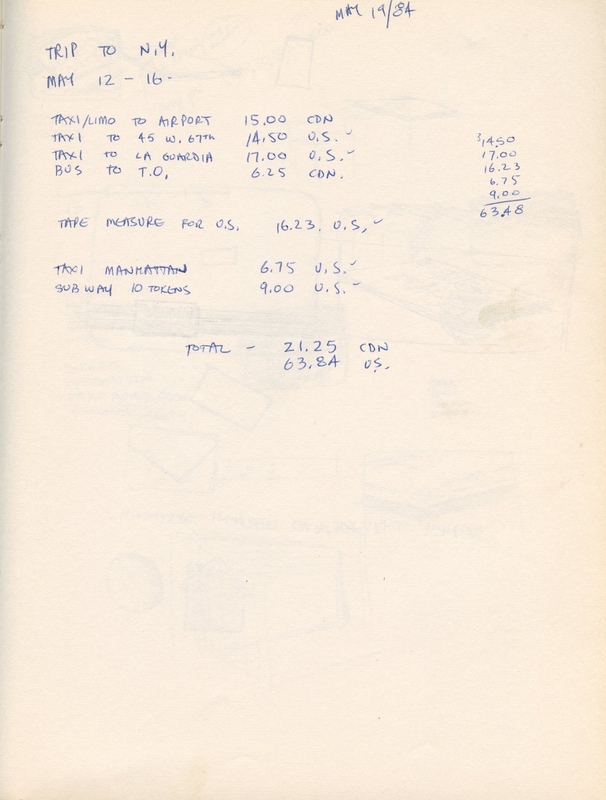 MAY 19/84
TRIP TO N.Y.
MAY 12 - 16-
TAXI/LIMO TO AIRPORT 15.00 CDN
TAXI TO 45 W. 67TH 14.50 U.S.
TAXI TO LA GUARDIA 17.00 U.S.
BUS TO T.O. 6.25 CDN.
$14.50
17.00
16.23
6.75
9.00
63.48
TAPE MEASURE FOR U.S. 16.23. U.S,
TAXI MANHATTAN 6.75 U.S.
SUBWAY 10 TOKENS 9.00 U.S.
TOTAL - 21.25 CDN
63.84 U.S.